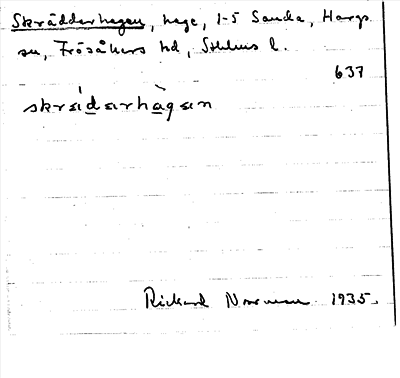 Skräddarhagen, hage, 1-5 Sanda, Hargs
sn, Frösåkers hd, Sthlms l.
637
skrädarhàgan
Rickard Norrman 1935.